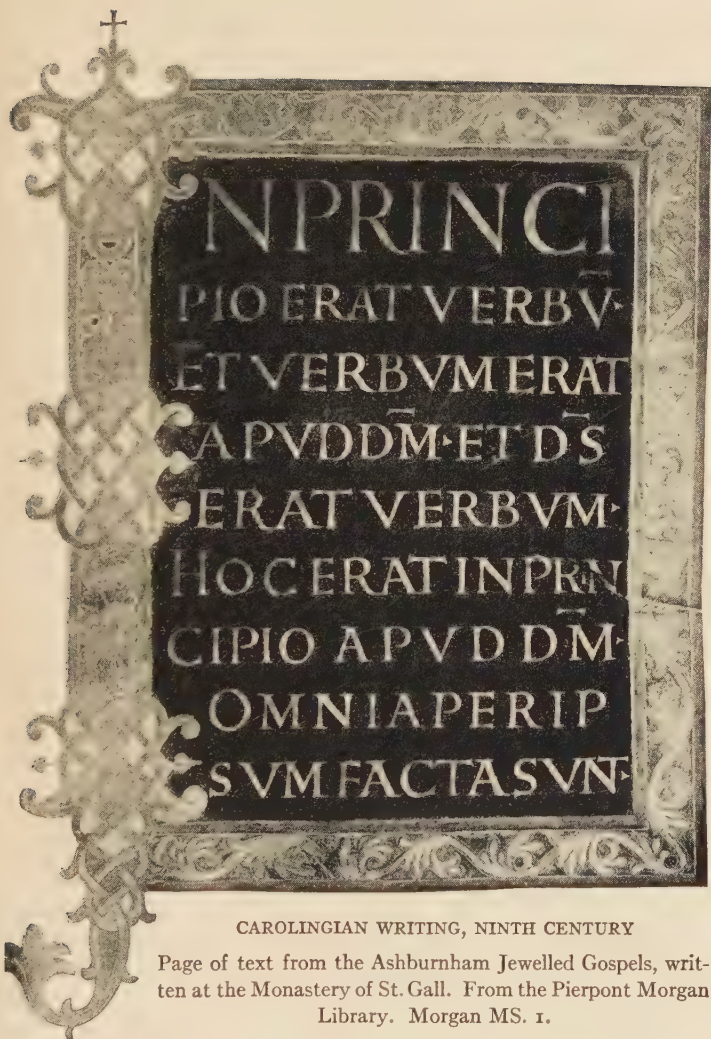 NPRINCI
PIO ERAT VERBV̄·
ET VERBVM ERAT
APVD DM̄· ET D̄S
ERAT VERBVM·
HOC ERAT IN PRN
CIPIO APVD DM̄·
OMNIA PER IP
SVM FACTA SVNT·
CAROLINGIAN WRITING, NINTH CENTURY
Page of text from the Ashburnham Jewelled Gospels, writ-
ten at the Monastery of St. Gall. From the Pierpont Morgan
Library. Morgan MS. 1.